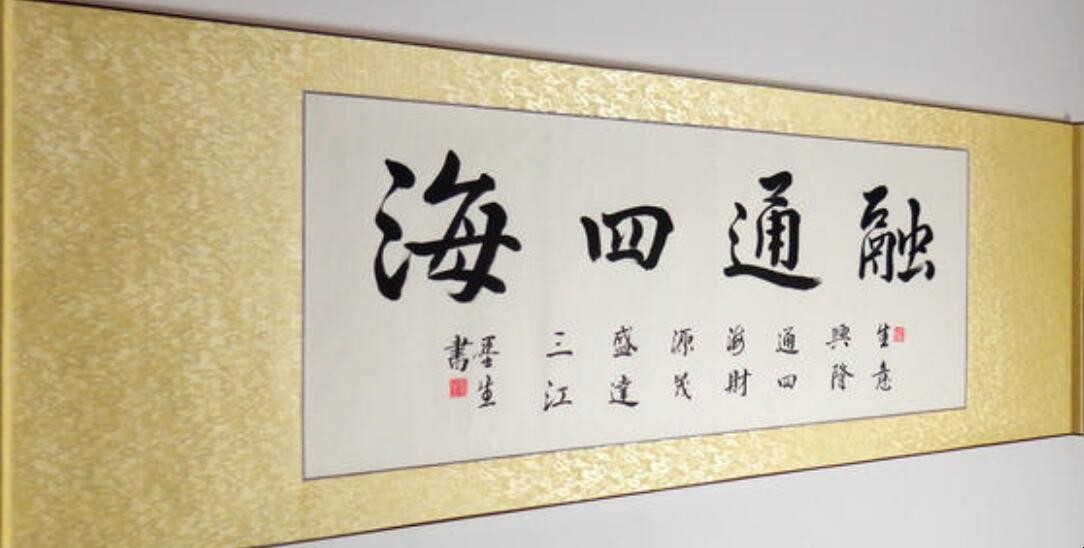 融通四海
生意
興隆
通四
海財
源茂
盛達
三江
墨生
書